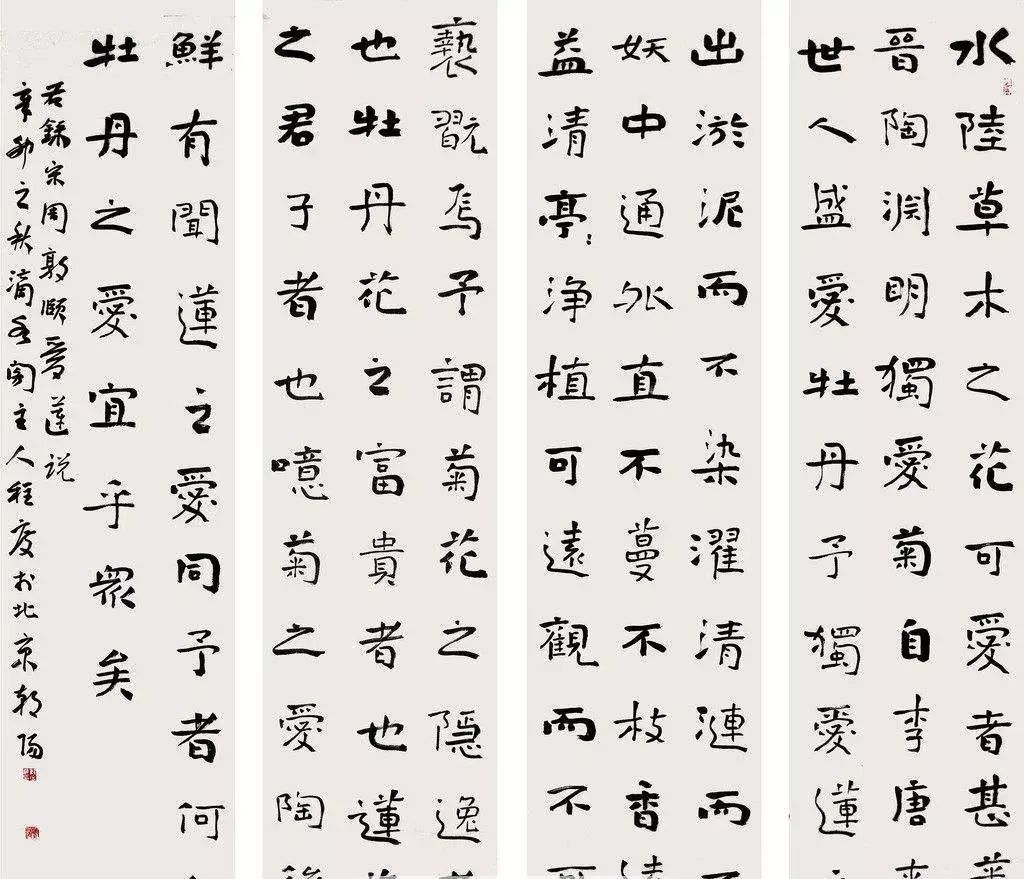 水陸草木之花可愛者甚蕃
晉陶渊明獨愛菊自李唐来
世人盛愛牡丹予獨愛蓮之
出淤泥而不染濯清漣而不
妖中通外直不蔓不枝香遠
益清亭:浄植可遠觀而不可
褻翫焉予謂菊花之隱逸者
也牡丹花之富貴者也蓮花
之君子者也噫菊之愛陶後
鮮有聞蓮之愛同予者何
牡丹之愛宜乎眾矣
右録宋周敦頤愛蓮说
辛卯之秋滴閣主人程度於北京朝陽